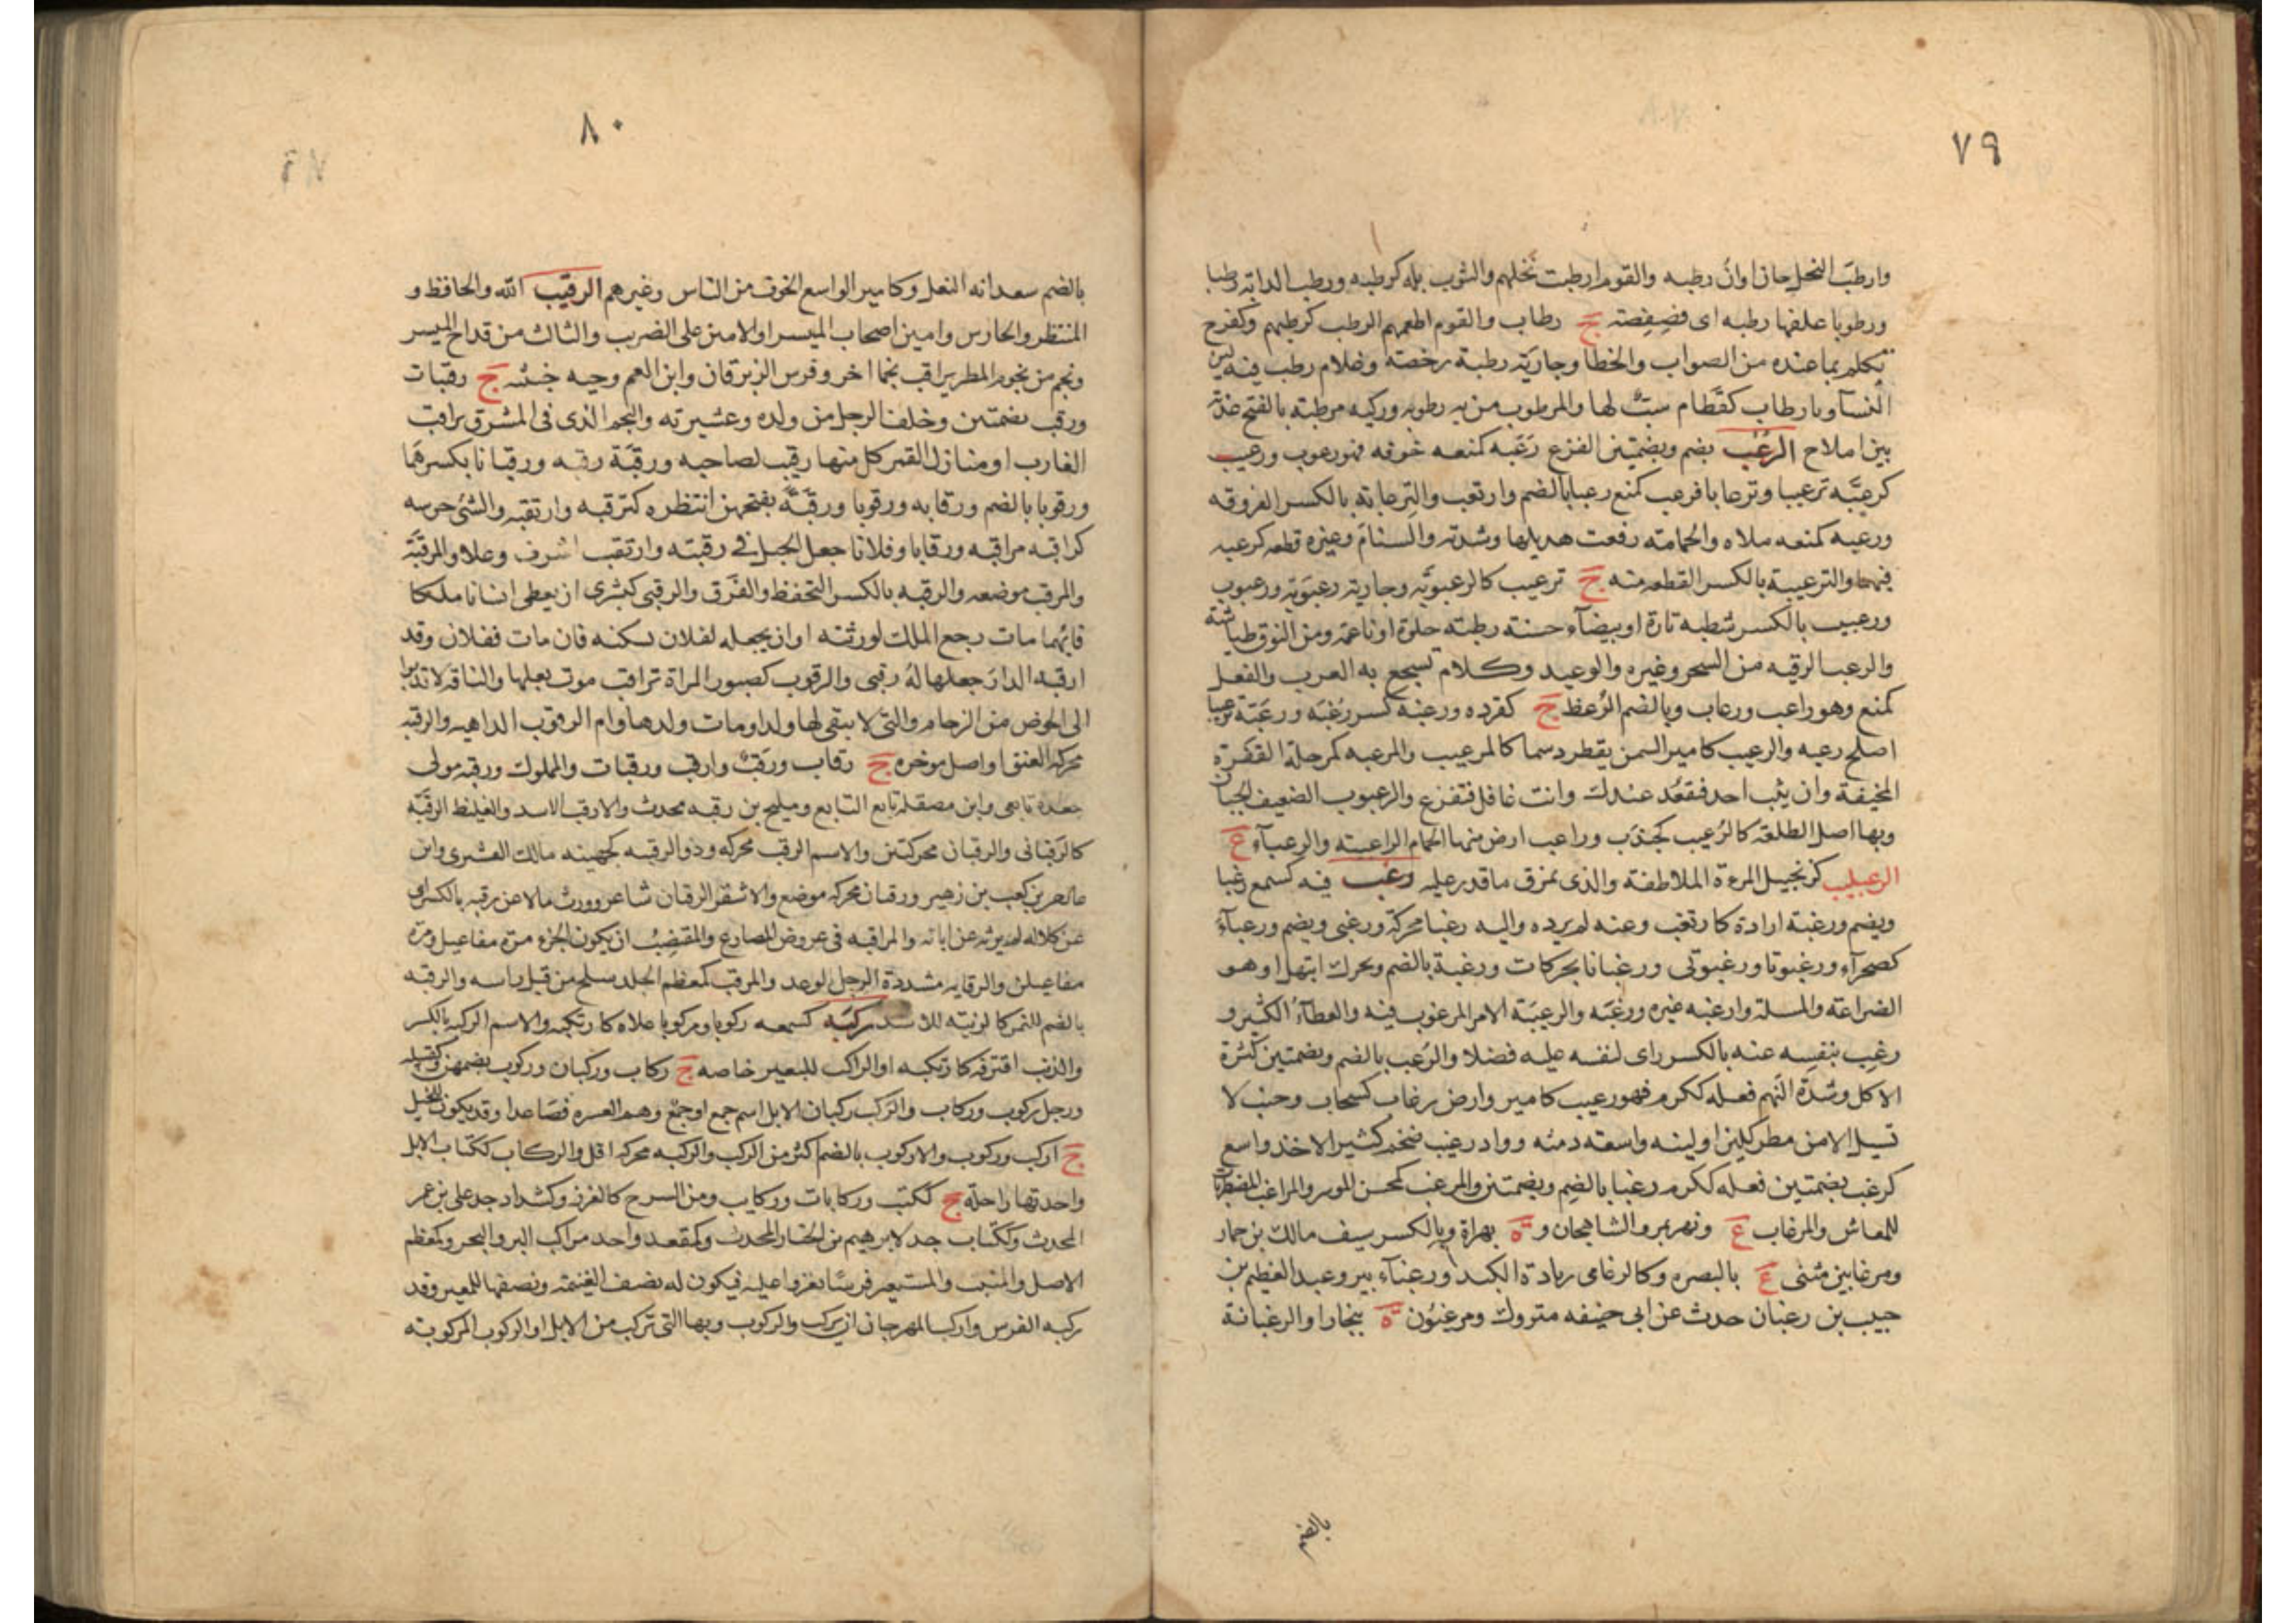 ٧٩
وارطب النخل حان اوان رطبه والقوم ارطبت نخلهم والثوب بله كرطبه ورطب الدابة رطبا
ورطوبا علفها رطبه اى فصفصة ج رطاب والقوم اطعمهم الرطب كرطبهم وكفرح
تكلم بما عنده من الصواب والخطا وجارية رطبة رخصة وغلام رطب فيه لين
النسآ ويا رطاب كقطام سب لها والمرطوب من به رطوبه وركيه مرطبة بالفتح عذبة
بين املاح الرعب بضم وبضمتين الفزع رعبه كمنعه خوفه فهو مرعوب ورعيب
كرعبه ترعيبا وترعابا فرعب كمنع رعبا بالضم وارتعب والترعابة بالكسر الفروقه
ورعبه كمنعه ملاه والحمامة رفعت هديلها وشدته والسنام وغيره قطعه كرعبه
فيهما والترعيبة بالكسر القطعه منه ج ترعيب كالرعبوبة وجارية رعبوبة ورعبوب
ورعبيب بالكسر شطبه تارة او بيضآء حسنة رطبة حلوة او ناعمة ومن النوق طياشة
والرعب الرقيه من السحر وغيره والوعيد وكلام تسجع به العرب والفعل
كمنع وهو راعب ورعاب وبالضم الرعظ ج كقرده ورعبه كسر رعبه ورعبه ترعيبا
اصلح رعبه والرعيب كامير السمن يقطر دسما كالمرعيب والمرعبه كمرحلة القفزة
المخيفة وان يثب احد فيقعد عندك وانت غافل فتفزع والرعبوب الضعيف الجبان
وبها اصل الطلعة كالرعيب كجندب وراعب ارض منها الحمام الراعبيه والرعبآء ع
الرعبليب كزنجبيل المرءة الملاطفة والذى يمزق ما قدر عليه رغب فيه كسمع رغبا
ويضم ورغبة اراده كارتغب وعنه لم يرده واليه رغبا محركة ورغبى ويضم ورغبآء
كصحرآء ورغبوتا ورغبوتى ورغبانا بحركات ورغبة بالضم ويحرك ابتهل او هو
الضراعة والمسلة وارغبه غيره ورغبه والرغيبة الامر المرغوب فيه والعطآء الكثير و
رغب بنفسه عنه بالكسر راى لنفسه عليه فضلا والرغب بالضم وبضمتين كثرة
الاكل وشدة النهم فعله ككرم فهو رغيب كامير وارض رغاب كسحاب وجنب لا
تسيل الا من مطر كثير او لينه واسعه دمثه وواد رغيب ضخم كثير الاخذ واسع
كرغب بضمتين فعله ككرم رغبا بالضم وبضمتين والمرغب كمحسن الموسر والمراغب المضطربات
للمعاش والمرغاب ع ونهر بمرو الشاهجان وة بهراة وبالكسر سيف مالك بن حمار
ومرغابين مثنى ع بالبصره وكالرغامى زيادة الكبد ورغبآء بير وعبد العظيم بن
حبيب بن رغبان حدث عن ابى حنيفه متروك ومرغبون ة ببخارا والرغبانة
بالضم
٨٠
بالضم سعدانه النعل وكامير الواسع الجوف من الناس وغيرهم الرقيب الله والحافظ و
المنتظر والحارس وامين اصحاب الميسر او الامين على الضريب والثالث من قداح الميسر
ونجم من نجوم المطر يراقب نجما اخر وفرس الزبرقان وابن العم وحيه خبيثه ج رقيبات
ورقب بضمتين وخلف الرجل من ولده وعشيرته والنجم الذى فى المشرق يراقب
الغارب او منازل القمر كل منها رقيب لصاحبه ورقبة رقبه ورقبانا بكسرهما
ورقوبا بالضم ورقابه ورقوبا ورقبة بفتحهن انتظره كترقبه وارتقبه والشئ حرسه
كراقبه مراقبه ورقابا وفلانا جعل الحبل فى رقبته وارتقب اشرف وعلا والمرقبة
والمرقب موضعه والرقبه بالكسر التحفظ والفرق والرقبى كبشرى ان يعطى انسانا ملكا
فايهما مات رجع الملك لورثته او ان يجعله لفلان يسكنه فان مات ففلان وقد
ارقبه الدار جعلها له رقبى والرقوب كصبور المراة تراقب موت بعلها والناقة لا تدنوا
الى الحوض من الزحام والتى لا يبقى لها ولد او مات ولدها وام الرقوب الداهيه والرقبه
محركه العنق او اصل موخره ج رقاب ورقب وارقب ورقبات والمملوك ورقبه مولى
جعدة تابعى وابن مصقله تابع التابع ومليح بن رقبه محدث والارقب الاسد والغليظ الرقبة
كالرقبانى والرقبان محركتين والاسم الرقب محركه وذو الرقيبه كجهينه مالك القشيرى وابن
عبد بن كعب بن زهير ورقبان محركه موضع والاشعر الرقبان شاعر وورث مالا عن رقبه بالكسر اى
عن كلاله لم يرثه عن ابائه والمراقبه فى عروض المضارع والمقتضب ان يكون الجزء مرة مفاعيل ومرة
مفاعيلن والرقابه مشددة الرجل الوغد والمرقب كمعظم الجلد سلخ من قبل راسه والرقبه
بالضم للنمر كالزبيه للاسد ركبه كسمعه ركوبا ومركبا علاه كارتكبه والاسم الركبه بالكسر
والذنب اقترفه كارتكبه او الراكب للبعير خاصه ج ركاب وركبان وركوب بضمهن وكفيله
ورجل ركوب وركاب والركب ركبان الابل اسم جمع او جمع وهم العشره فصاعدا وقد يكون للخيل
ج اركب وركوب والاركوب بالضم اكثر من الركب والركبه محركه اقل والركاب ككتاب الابل
واحدتها راحلة ج ككتب وركابات وركايب ومن السرج كالغرز وكشداد جد على بن عمر
المحدث وككتاب جد لابرهيم بن الخباز المحدث وكمقعد واحد مراكب البر والبحر وكمعظم
الاصل والمنبت والمستعير فرسا يغزوا عليه فيكون له نصف الغنيمة ونصفها للمعير وقد
ركبه الفرس واركب المهر حان ان يركب والركوب وبها التى تركب من الابل او الركوب المركوبة